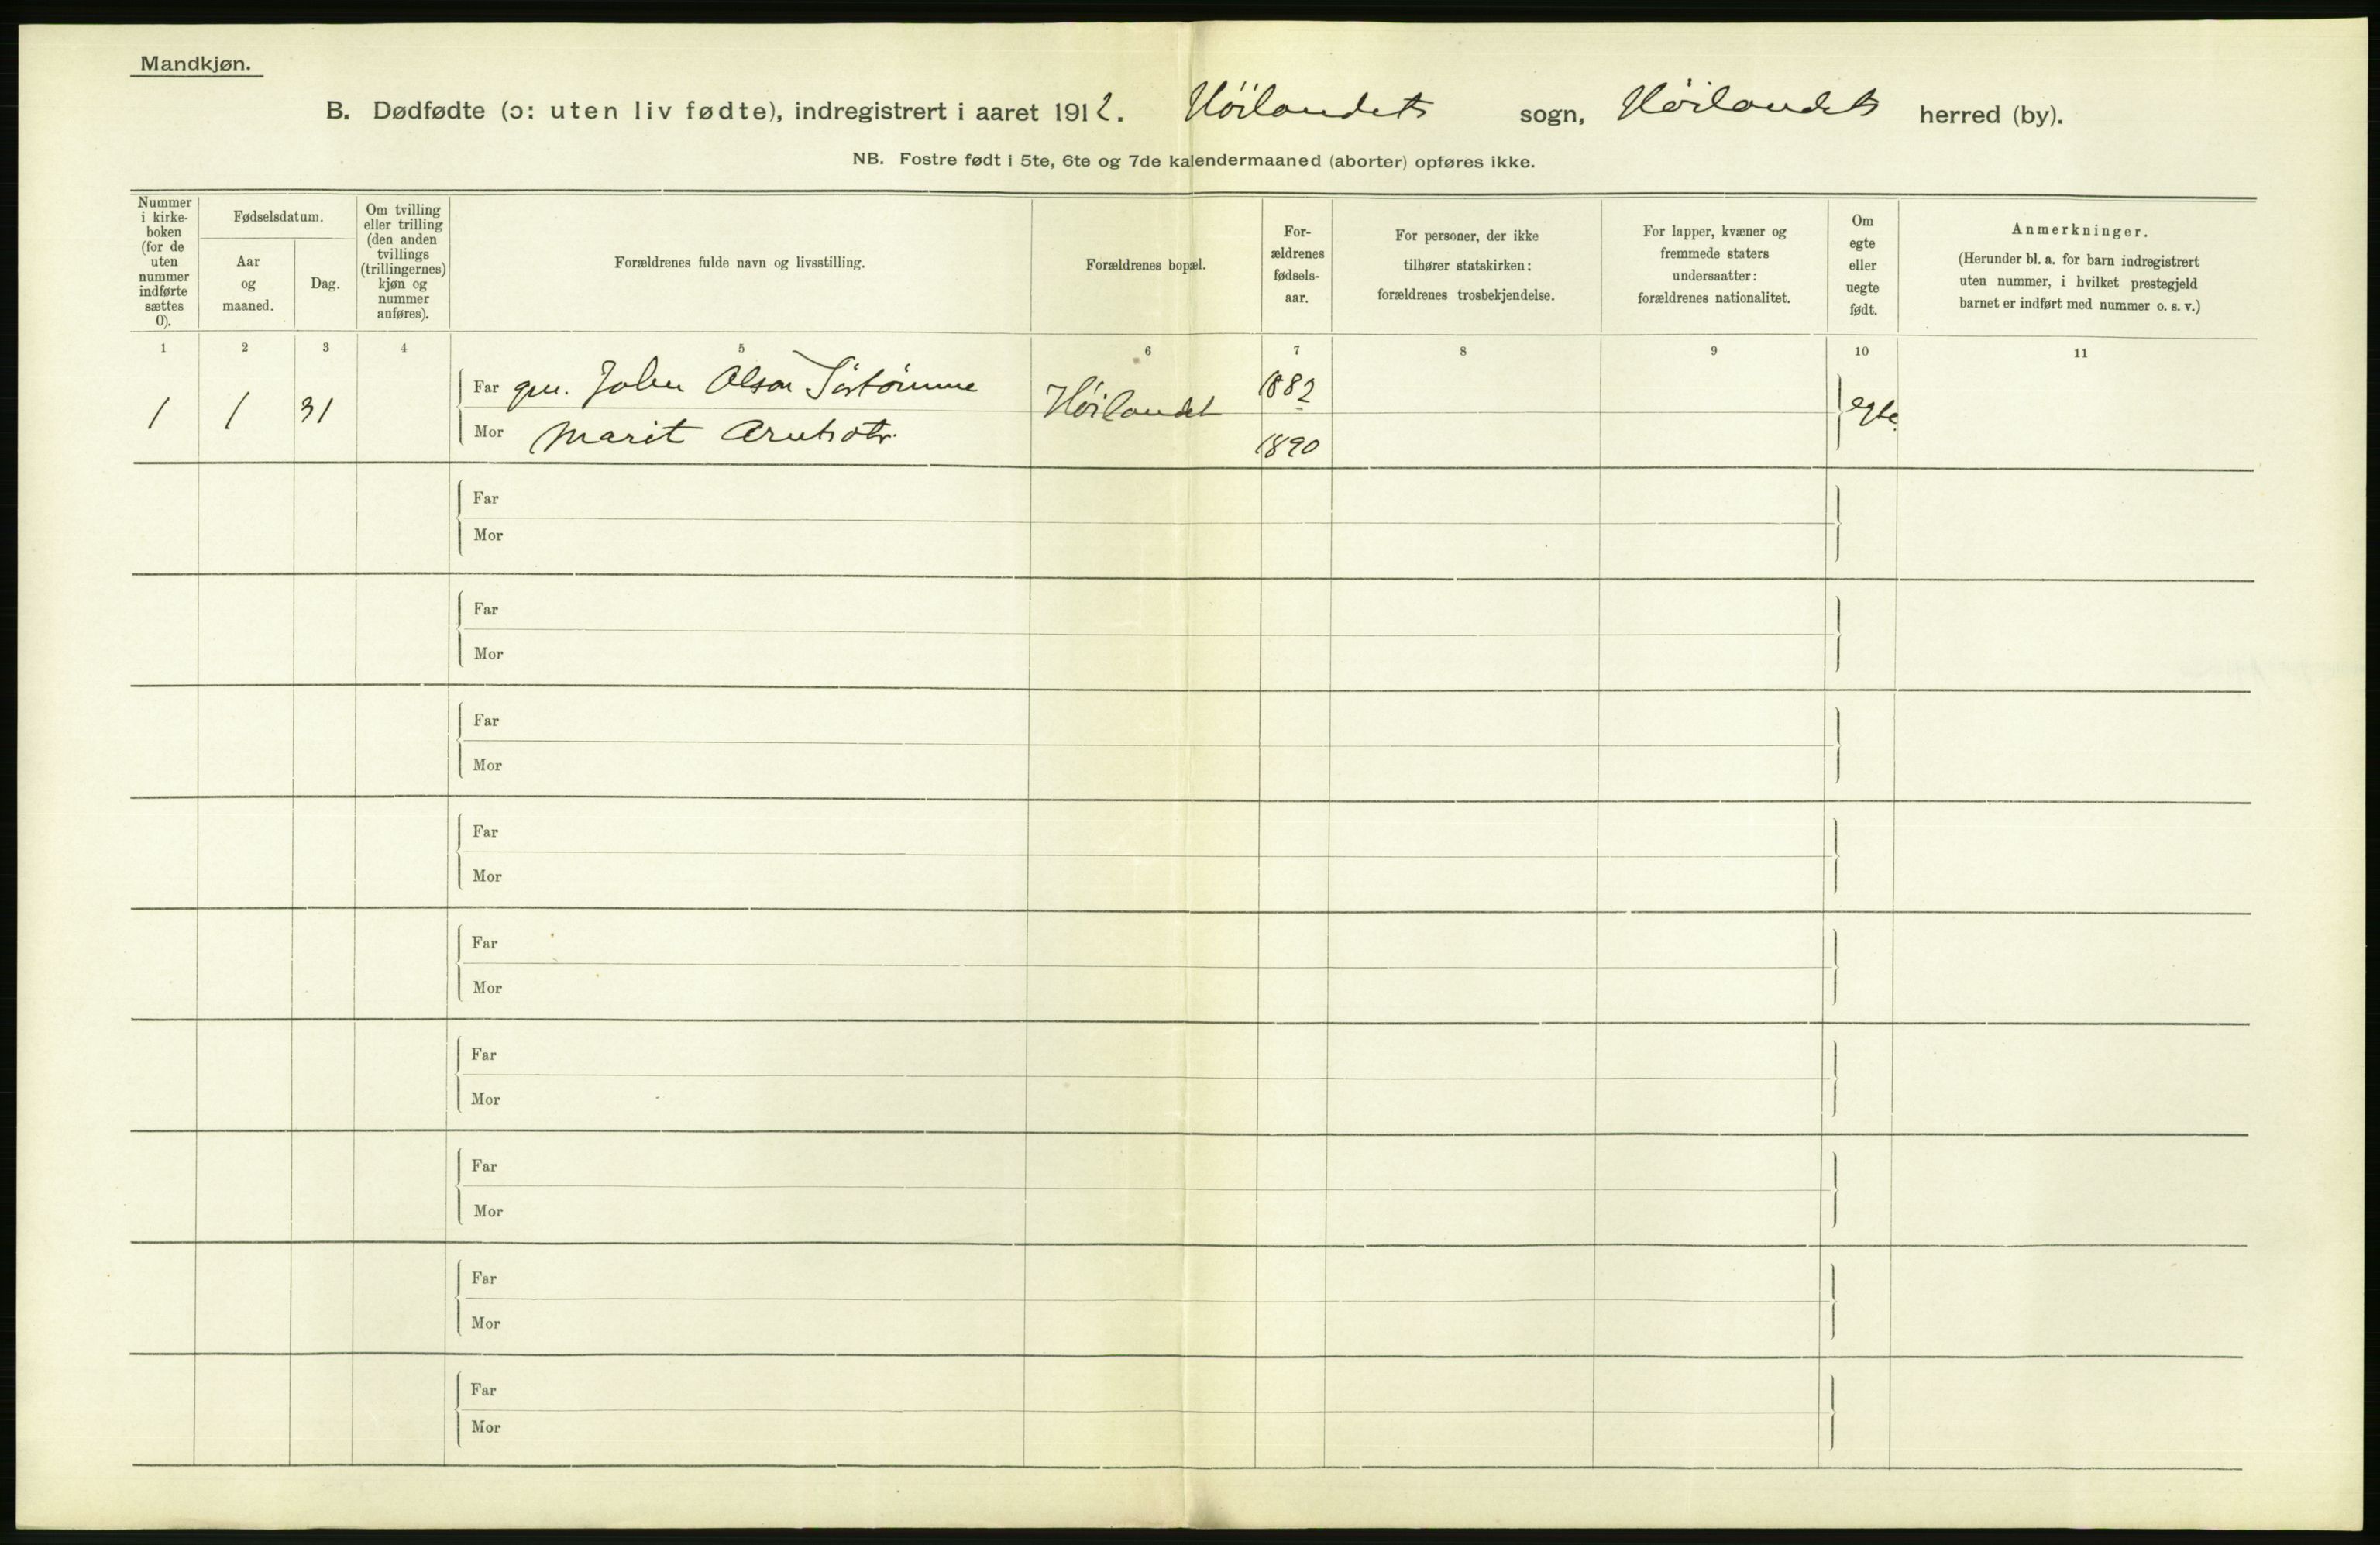 Mandkjøn.
B. Dødfødte (ɔ: uten liv fødte), indregistrert i aaret 1912. Höilandets sogn, Höilandets herred (by).
NB. Fostre født i 5te, 6te og 7de kalendermaaned (aborter) opføres ikke.
Nummer
i kirke-
boken
(for de
uten
nummer
indførte
sættes
0).
Fødselsdatum.
Aar
og
maaned.
Dag.
Om tvilling
eller trilling
(den anden
tvillings
(trillingernes)
kjøn og
nummer
anføres).
Forældrenes fulde navn og livsstilling.
Forældrenes bopæl.
For-
ældrenes
fødsels-
aar.
For personer, der ikke
tilhører statskirken:
forældrenes trosbekjendelse.
For lapper, kvæner og
fremmede staters
undersaatter:
forældrenes nationalitet.
Om
egte
eller
uegte
født.
Anmerkninger.
(Herunder bl. a. for barn indregistrert
uten nummer, i hvilket prestegjeld
barnet er indført med nummer o. s. v.)
1 2 3 4 5 6 7 8 9 10 11
Far John Olsen 1882
1 1 31 Höilandet egte
Mor Marit 1890
Far
Mor
Far
Mor
Far
Mor
Far
Mor
Far
Mor
Far
Mor
Far
Mor
Far
Mor
Far
Mor